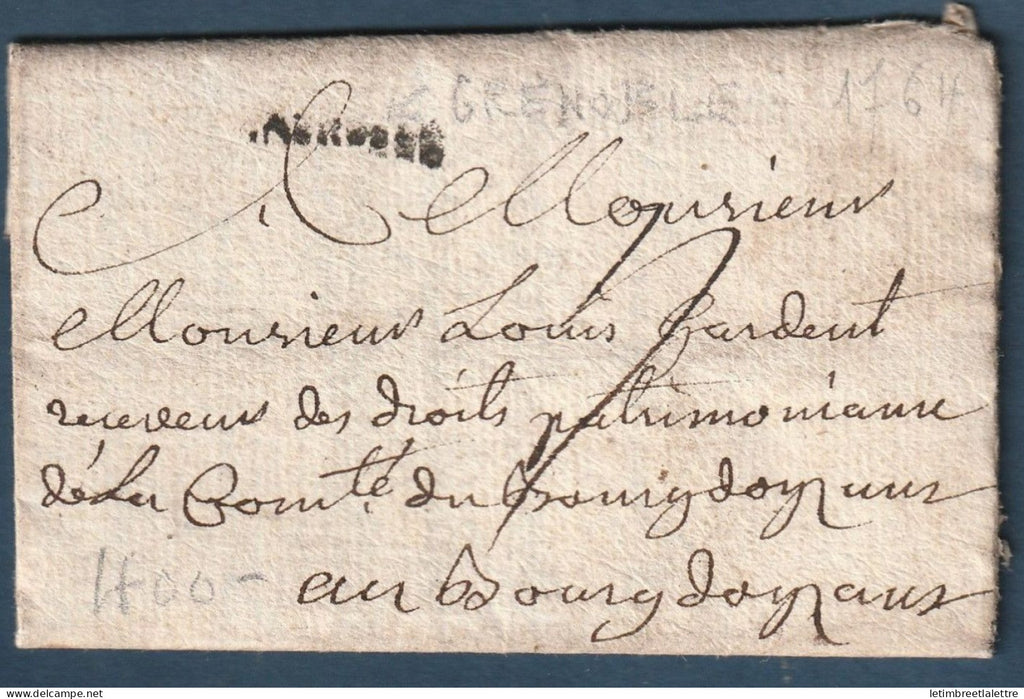 GRENOBLE 1764
A Monsieur
Monsieur Louis
receveur des droits patrimoniaux
de la Com.té du bourg doyzans
au Bourg doyzans
400-
www.delcampe.net
letimbreetlalettre